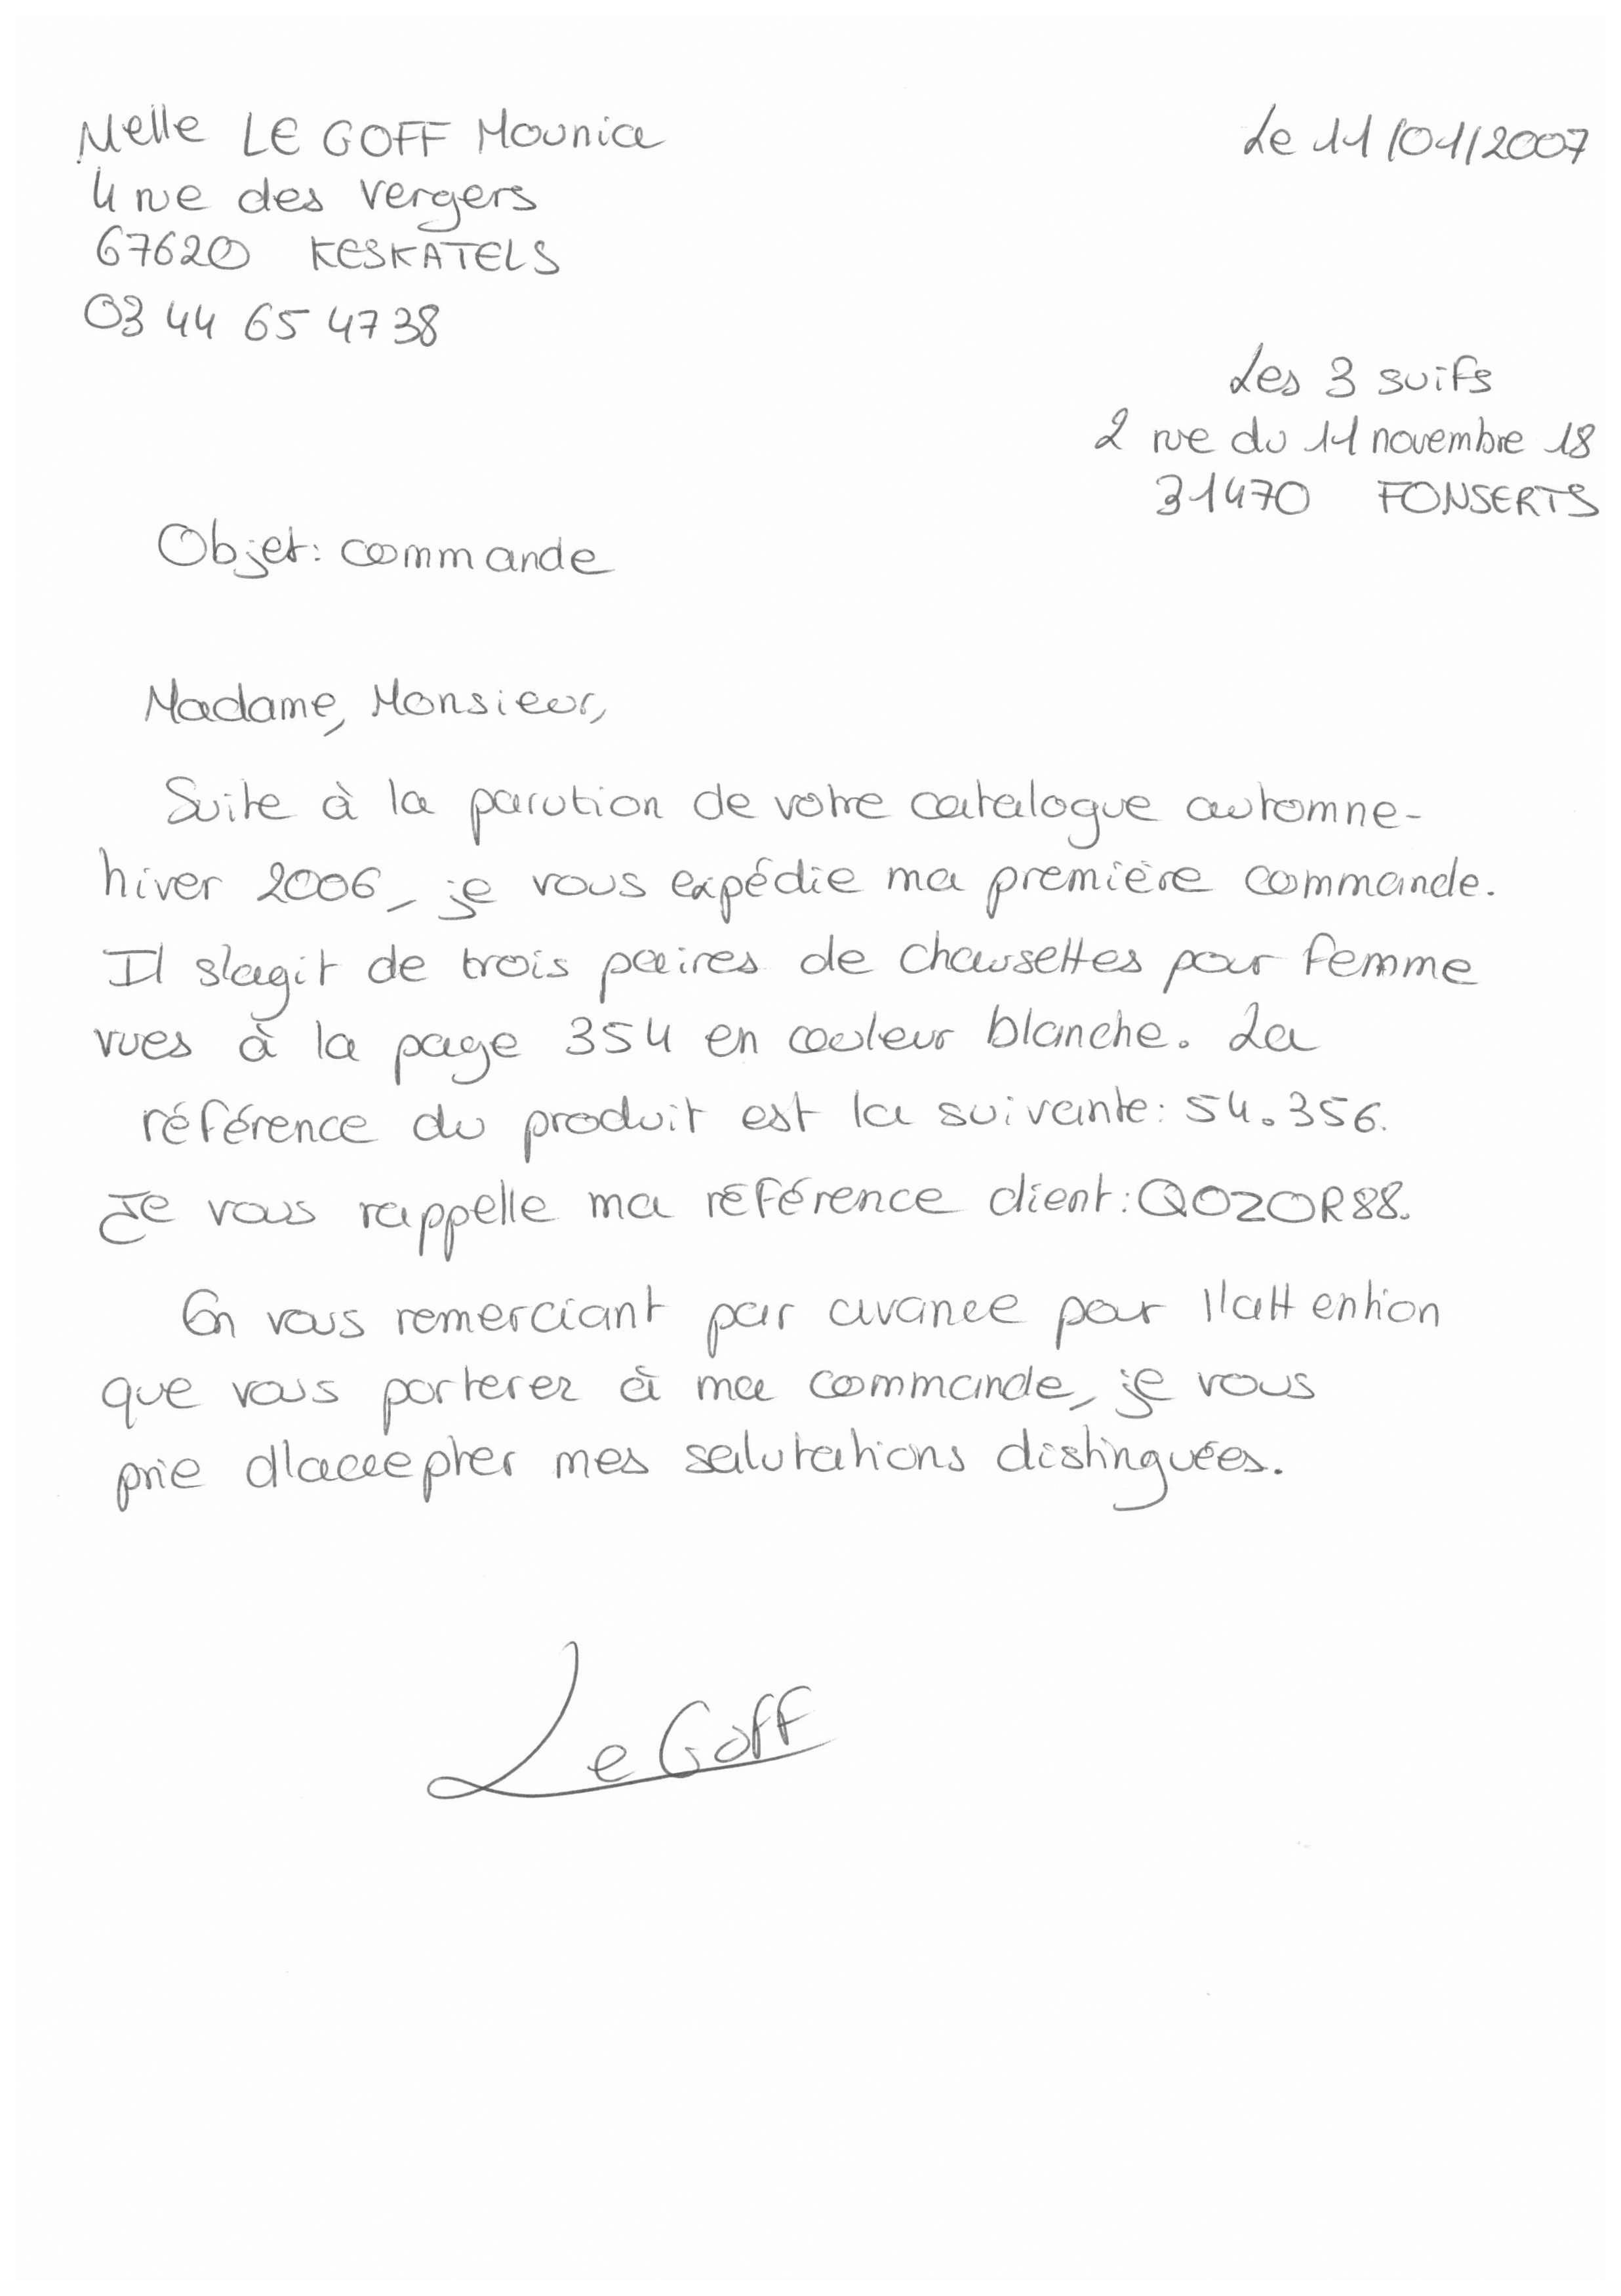 Melle LE GOFF Mounica
Le 11/01/2007
4 rue des vergers
67620 KESKATELS
03 44 65 47 38
Les 3 suifs
2 rue du 11 novembre 18
31470 FONSERTS
Objet: commande
Madame, Monsieur,
Suite à la parution de votre catalogue automne-
hiver 2006, je vous expédie ma première commande.
Il s'agit de trois paires de chaussettes pour femme
vues à la page 354 en couleur blanche. La
référence du produit est la suivante: 54.356.
Je vous rappelle ma référence client: QOZOR88.
En vous remerciant par avance pour l'attention
que vous porterez à ma commande, je vous
prie d'accepter mes salutations distinguées.
Le Goff